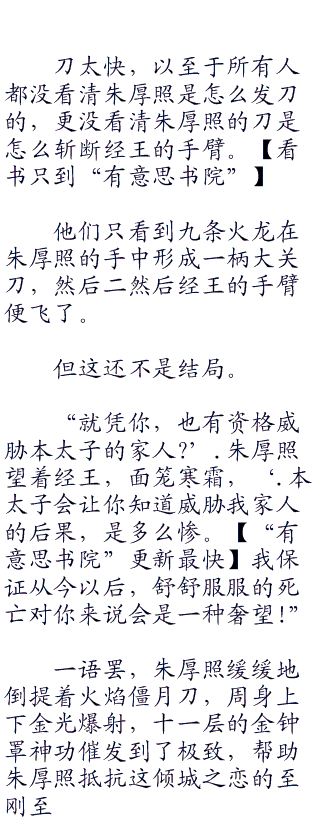 刀太快，以至于所有人
都没看清朱厚照是怎么发刀
的，更没看清朱厚照的刀是
怎么斩断经王的手臂。【看
书只到“有意思书院”】
他们只看到九条火龙在
朱厚照的手中形成一柄大关
刀，然后二然后经王的手臂
便飞了。
但这还不是结局。
“就凭你，也有资格威
胁本太子的家人?’.朱厚照
望着经王，面笼寒霜，‘.本
太子会让你知道威胁我家人
的后果，是多么惨。【“有
意思书院”更新最快】我保
证从今以后，舒舒服服的死
亡对你来说会是一种奢望!”
一语罢，朱厚照缓缓地
倒提着火焰僵月刀，周身上
下金光爆射，十一层的金钟
罩神功催发到了极致，帮助
朱厚照抵抗这倾城之恋的至
刚至